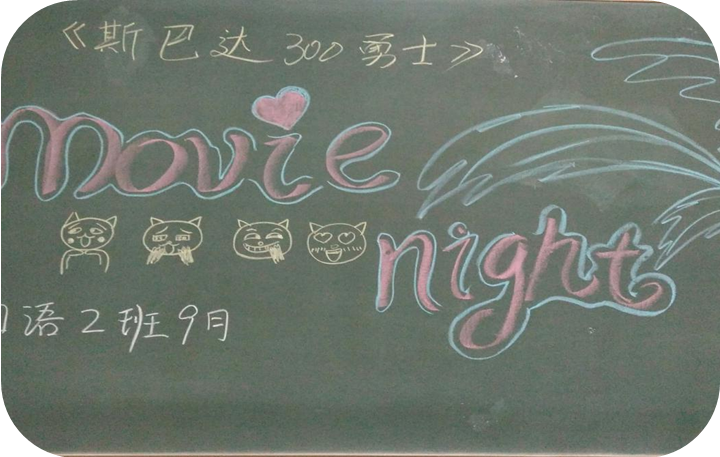 《斯巴达300勇士》
movie
night
语2班9月